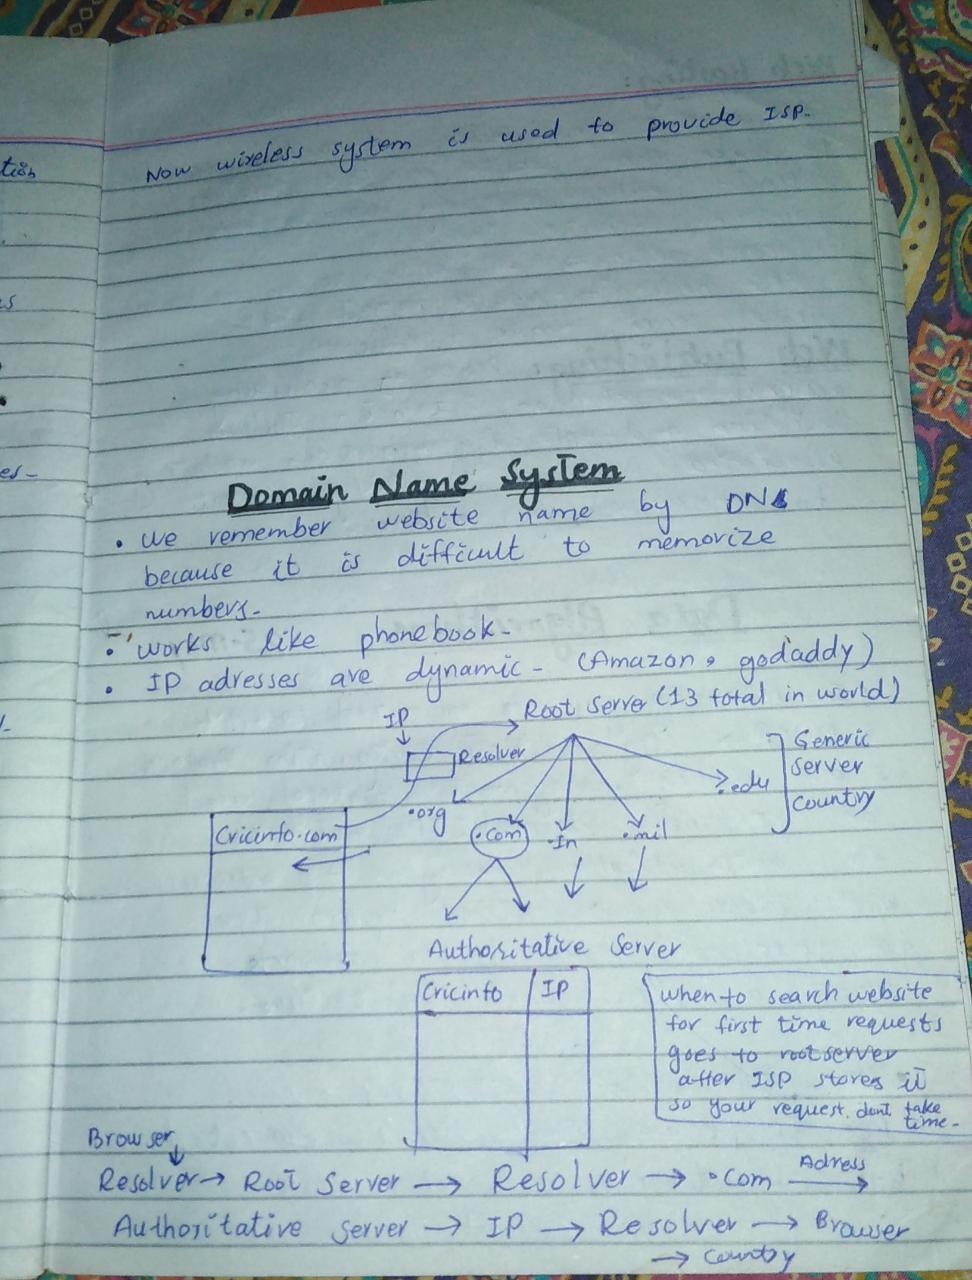 Now wireless system is used to provide ISP.
Domain Name System
• We remember website name by DNS
because it is difficult to memorize
numbers.
• works like phonebook.
• IP adresses are dynamic - (Amazon, godaddy)
IP
Root Server (13 total in world)
Resolver
Generic
server
country
.edu
.org
.com
.In
.mil
Cricinfo.com
Authoritative Server
Cricinfo IP
when to search website
for first time requests
goes to root server
after ISP stores it
so your request dont take
time.
Browser
Resolver → Root Server → Resolver → .com Adress →
Authoritative server → IP → Resolver → Browser
→ country
tion
es
es-